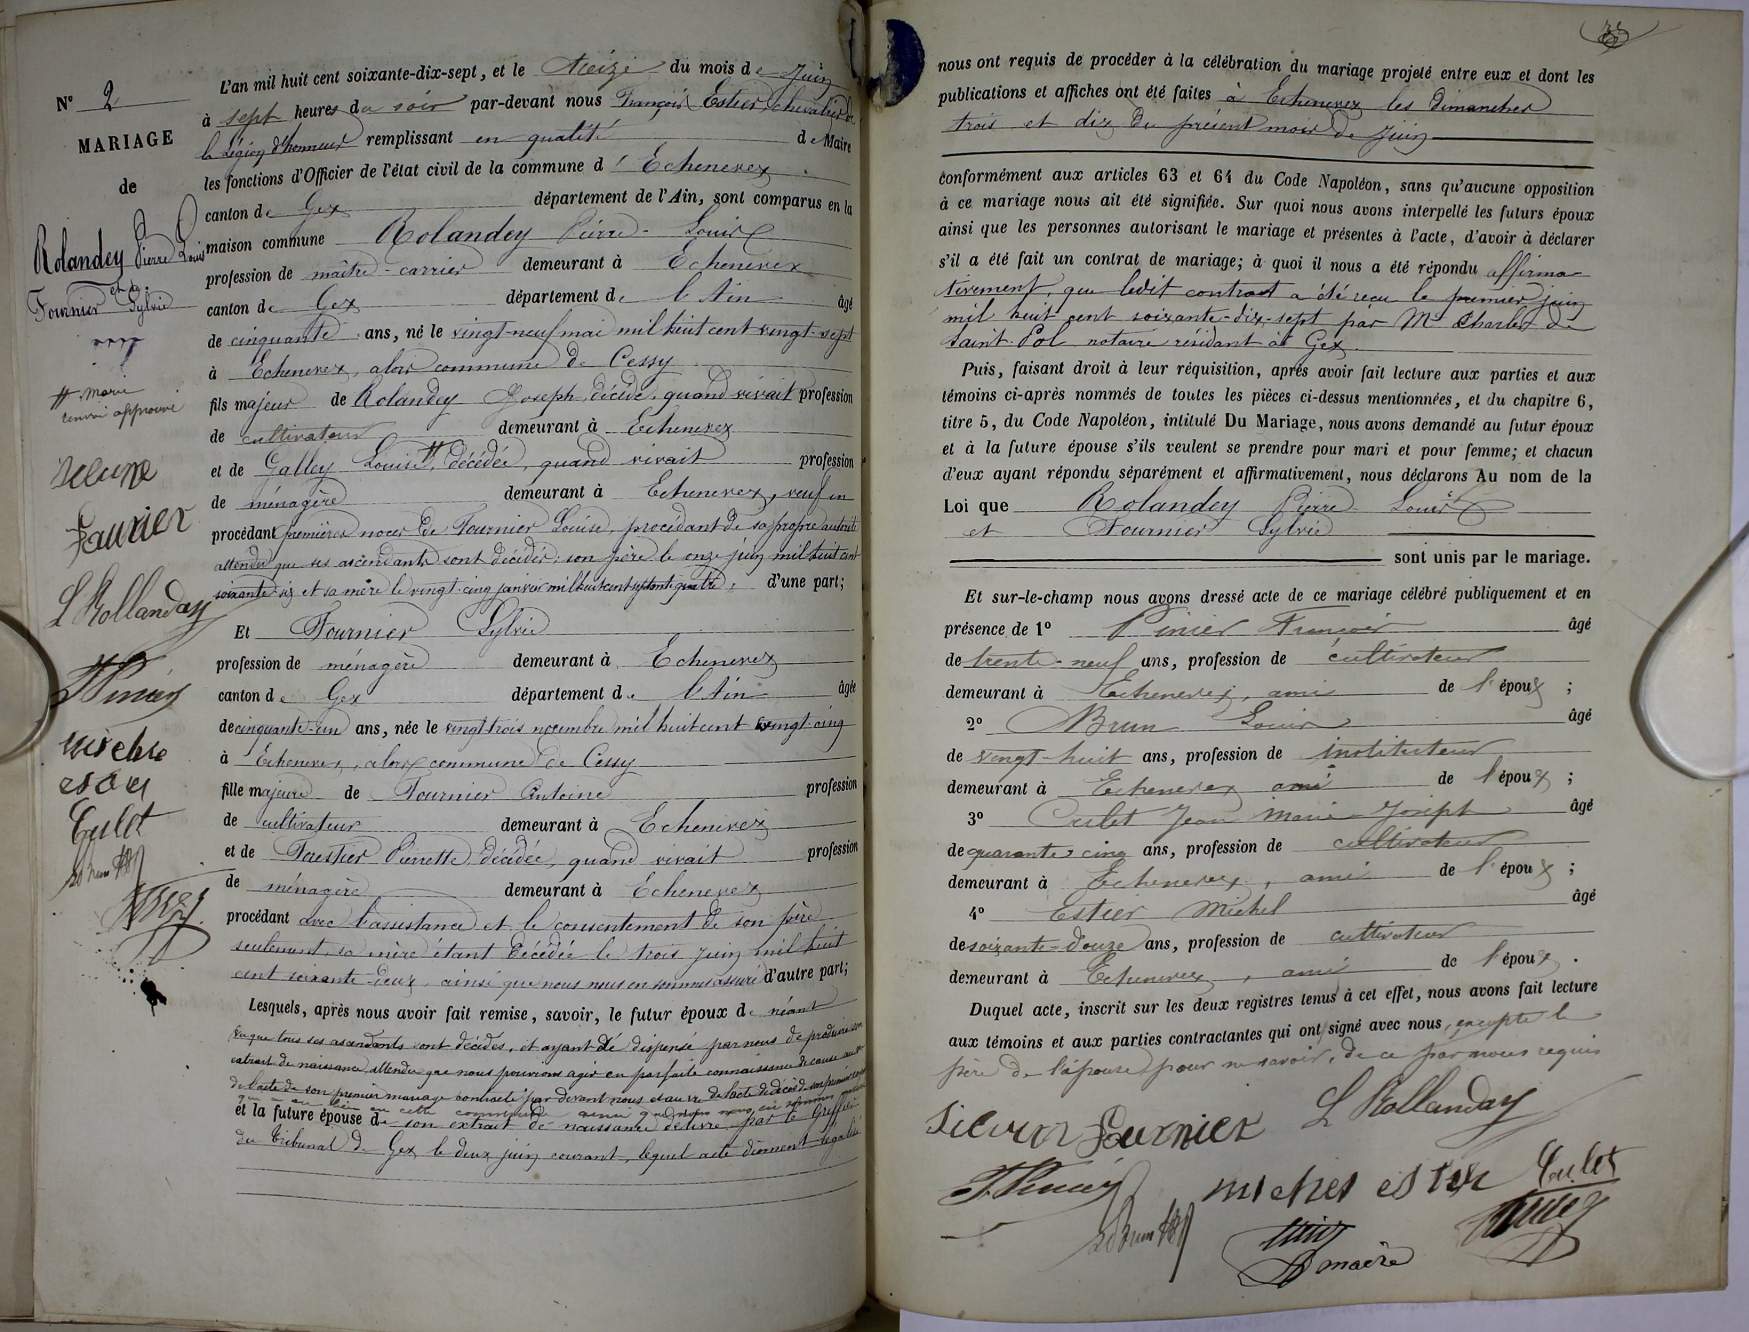 N° 2
MARIAGE
de
Rolandey Pierre Louis
et de
Fournier Sylvie
# Marie
renvoi approuvé
Fournier
L Rollanday
Culet
L'an mil huit cent soixante-dix-sept, et le treize du mois de Juin
à sept heures du soir par-devant nous François Estier, chevalier de
la Légion d'honneur remplissant en qualité de Maire
les fonctions d'Officier de l'état civil de la commune d'Echenevex
canton de Gex département de l'Ain, sont comparus en la
maison commune Rolandey Pierre-Louis
profession de maître-carrier demeurant à Echenevex
canton de Gex département de l'Ain âgé
de cinquante ans, né le vingt-neuf mai mil huit cent vingt-sept
à Echenevex, alors commune de Cessy
fils majeur de Rolandey Joseph, décédé, quand vivait profession
de cultivateur demeurant à Echenevex
et de Galley Louise #, décédée, quand vivait profession
de ménagère demeurant à Echenevex, veuf en
procédant premières noces de Fournier Louise, procédant de sa propre autorité
attendu que ses ascendants sont décédés, son père le onze juin mil huit cent
soixante-six et sa mère le vingt-cinq janvier mil huit cent septante quatre, d'une part;
Et Fournier Sylvie
profession de ménagère demeurant à Echenevex
canton de Gex département de l'Ain âgée
de cinquante-un ans, née le vingt-trois novembre mil huit cent vingt-cinq
à Echenevex, alors commune de Cessy
fille majeure de Fournier Antoine profession
de cultivateur demeurant à Echenevex
et de Forestier Pierrette décédée, quand vivait profession
de ménagère demeurant à Echenevex
procédant avec l'assistance et le consentement de son père
seulement, sa mère étant décédée le trois juin mil huit
cent soixante-deux, ainsi que nous nous en sommes assuré d'autre part;
Lesquels, après nous avoir fait remise, savoir, le futur époux de néant
vu que tous ses ascendants sont décédés, et ayant été dispensé par nous de produire son
extrait de naissance, attendu que nous pouvions agir en parfaite connaissance de cause
de l'acte de son premier mariage contracté par devant nous et au vu de l'acte de décès de son
qui a eu lieu en cette commune ainsi que nous nous en sommes
et la future épouse de son extrait de naissance délivré par le Greffier
du Tribunal de Gex le deux juin courant, lequel acte dûment légalisé
35
nous ont requis de procéder à la célébration du mariage projeté entre eux et dont les
publications et affiches ont été faites à Echenevex les dimanches
trois et dix du présent mois de juin
conformément aux articles 63 et 64 du Code Napoléon, sans qu'aucune opposition
à ce mariage nous ait été signifiée. Sur quoi nous avons interpellé les futurs époux
ainsi que les personnes autorisant le mariage et présentes à l'acte, d'avoir à déclarer
s'il a été fait un contrat de mariage; à quoi il nous a été répondu affirma-
tivement, que ledit contrat a été reçu le premier juin
mil huit cent soixante-dix-sept par Me Charles de
Saint-Pol notaire résidant à Gex.
Puis, faisant droit à leur réquisition, après avoir fait lecture aux parties et aux
témoins ci-après nommés de toutes les pièces ci-dessus mentionnées, et du chapitre 6,
titre 5, du Code Napoléon, intitulé Du Mariage, nous avons demandé au futur époux
et à la future épouse s'ils veulent se prendre pour mari et pour femme; et chacun
d'eux ayant répondu séparément et affirmativement, nous déclarons Au nom de la
Loi que Rolandey Pierre Louis
et Fournier Sylvie
sont unis par le mariage.
Et sur-le-champ nous avons dressé acte de ce mariage célébré publiquement et en
présence de 1° Pinier François âgé
de trente-neuf ans, profession de cultivateur
demeurant à Echenevex, ami de l'époux ;
2° Brun Louis âgé
de vingt-huit ans, profession de instituteur
demeurant à Echenevex ami de l'époux ;
3° Culet Jean Marie Joseph âgé
de quarante cinq ans, profession de cultivateur
demeurant à Echenevex, ami de l'époux ;
4° Estier Michel âgé
de soixante-douze ans, profession de cultivateur
demeurant à Echenevex, ami de l'époux .
Duquel acte, inscrit sur les deux registres tenus à cet effet, nous avons fait lecture
aux témoins et aux parties contractantes qui ont signé avec nous, excepté le
père de l'épouse pour ne savoir, de ce par nous requis
Fournier L Rollanday
Culet
maire